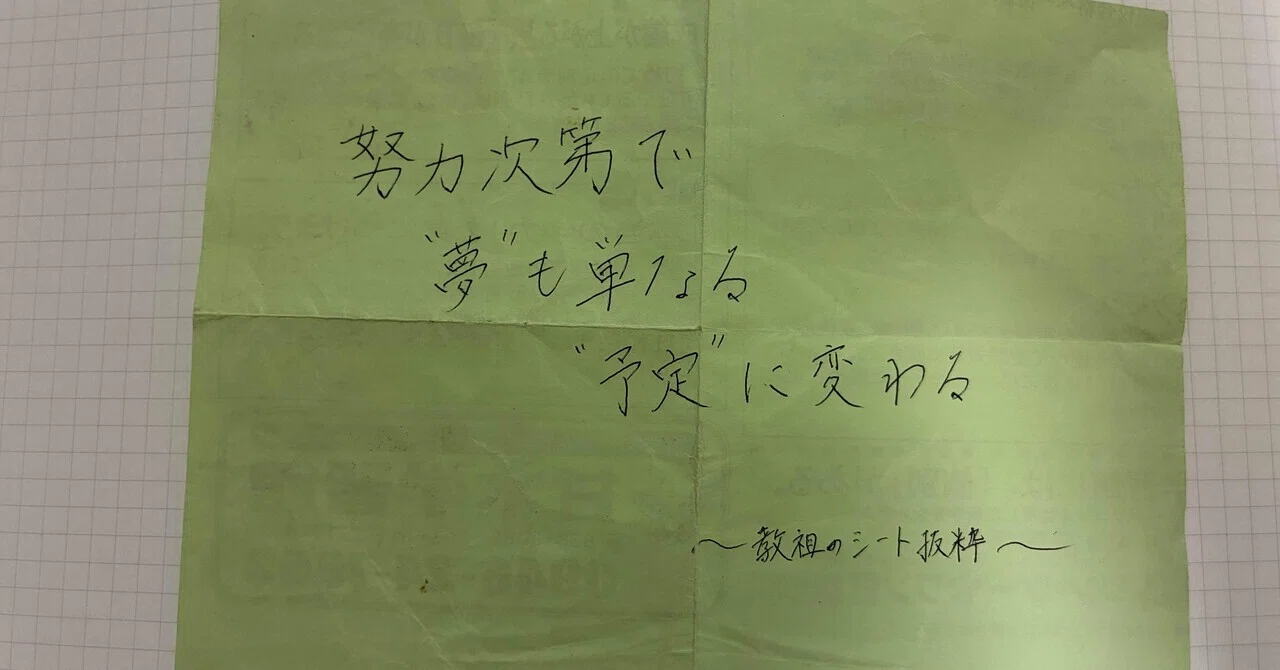 努力次第で
“夢”も単なる
“予定”に変わる
～教祖のシート抜粋～